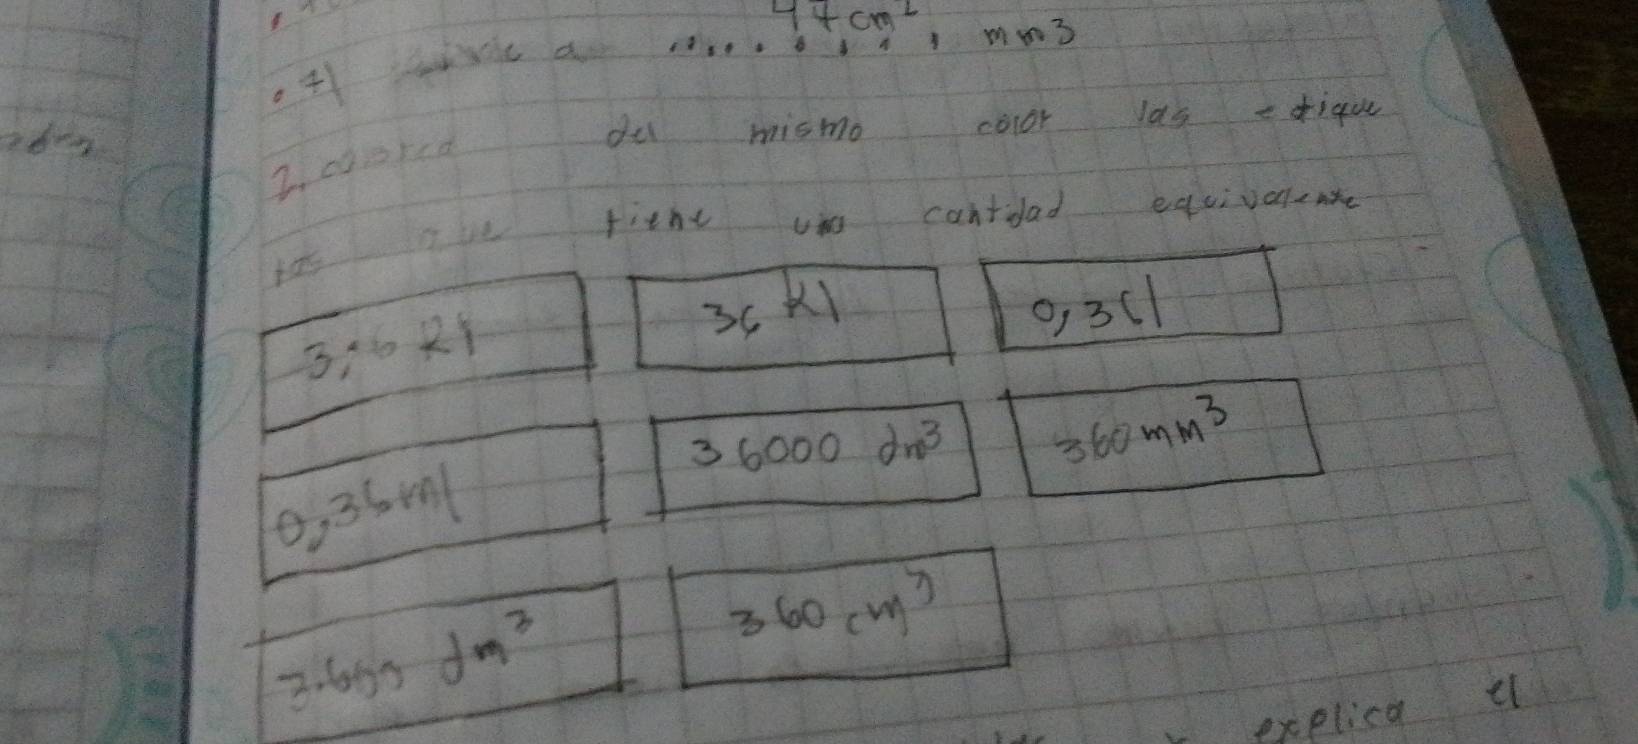 47 cm²
.7) a ........, mm3
2. colorea del mismo color las etique
tas que tiene una cantidad equivalente
3,6 Kl 36 Kl 0,36l
0,36ml 36000 dm³ 360 mm³
3.600 dm³ 360 cm³
explica el